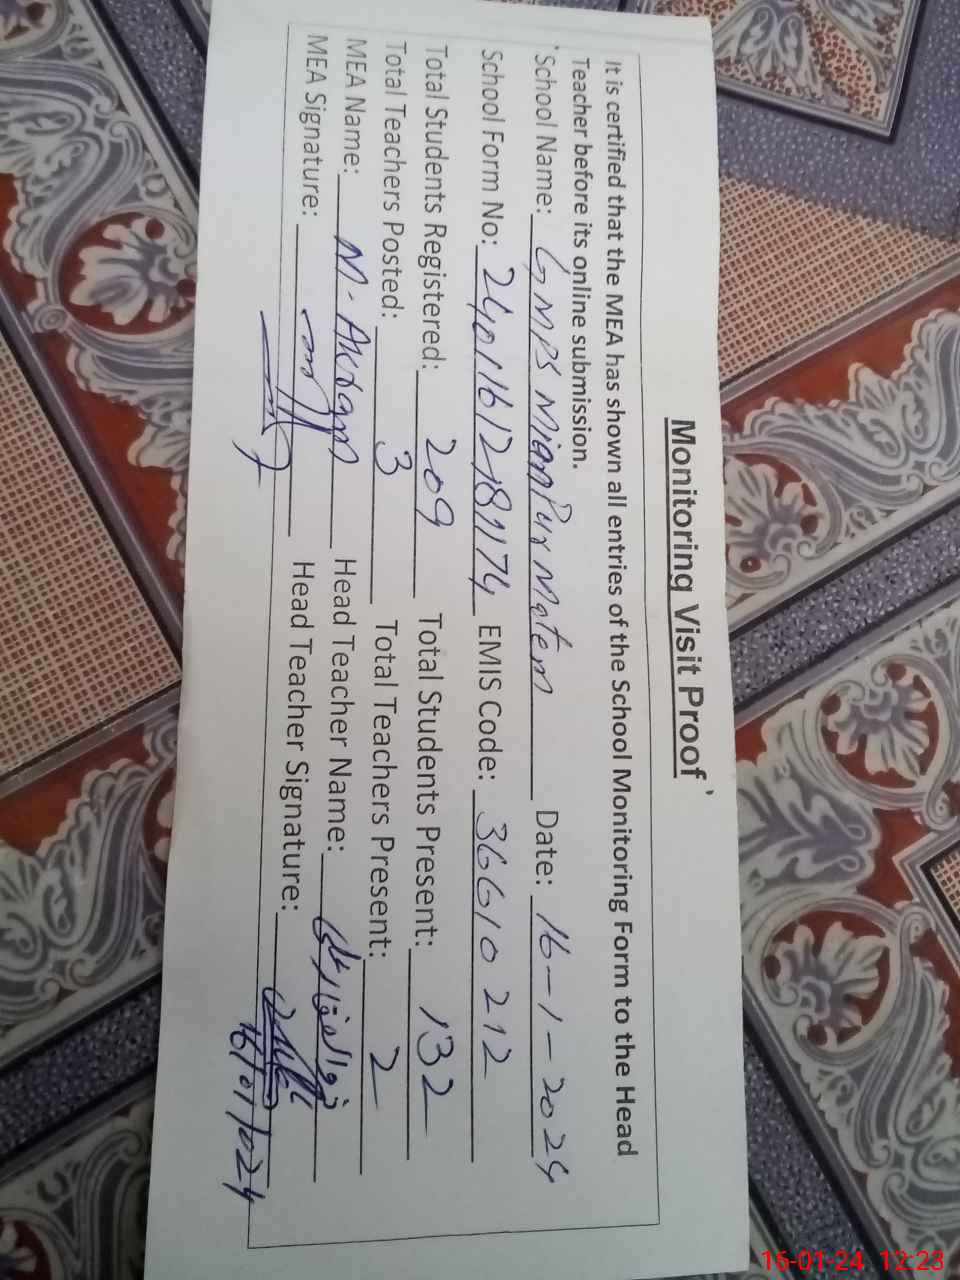 Monitoring Visit Proof
It is certified that the MEA has shown all entries of the School Monitoring Form to the Head
Teacher before its online submission.
School Name: GMPS Mianpur Matem Date: 16-1-2024
School Form No: EMIS Code: 36610212
Total Students Registered: 209 Total Students Present: 132
Total Teachers Posted: 3 Total Teachers Present: 2
MEA Name: M. Akram Head Teacher Name: ذوالفقار علی
MEA Signature: Head Teacher Signature:
16/01/2024
16-01-24 12:23